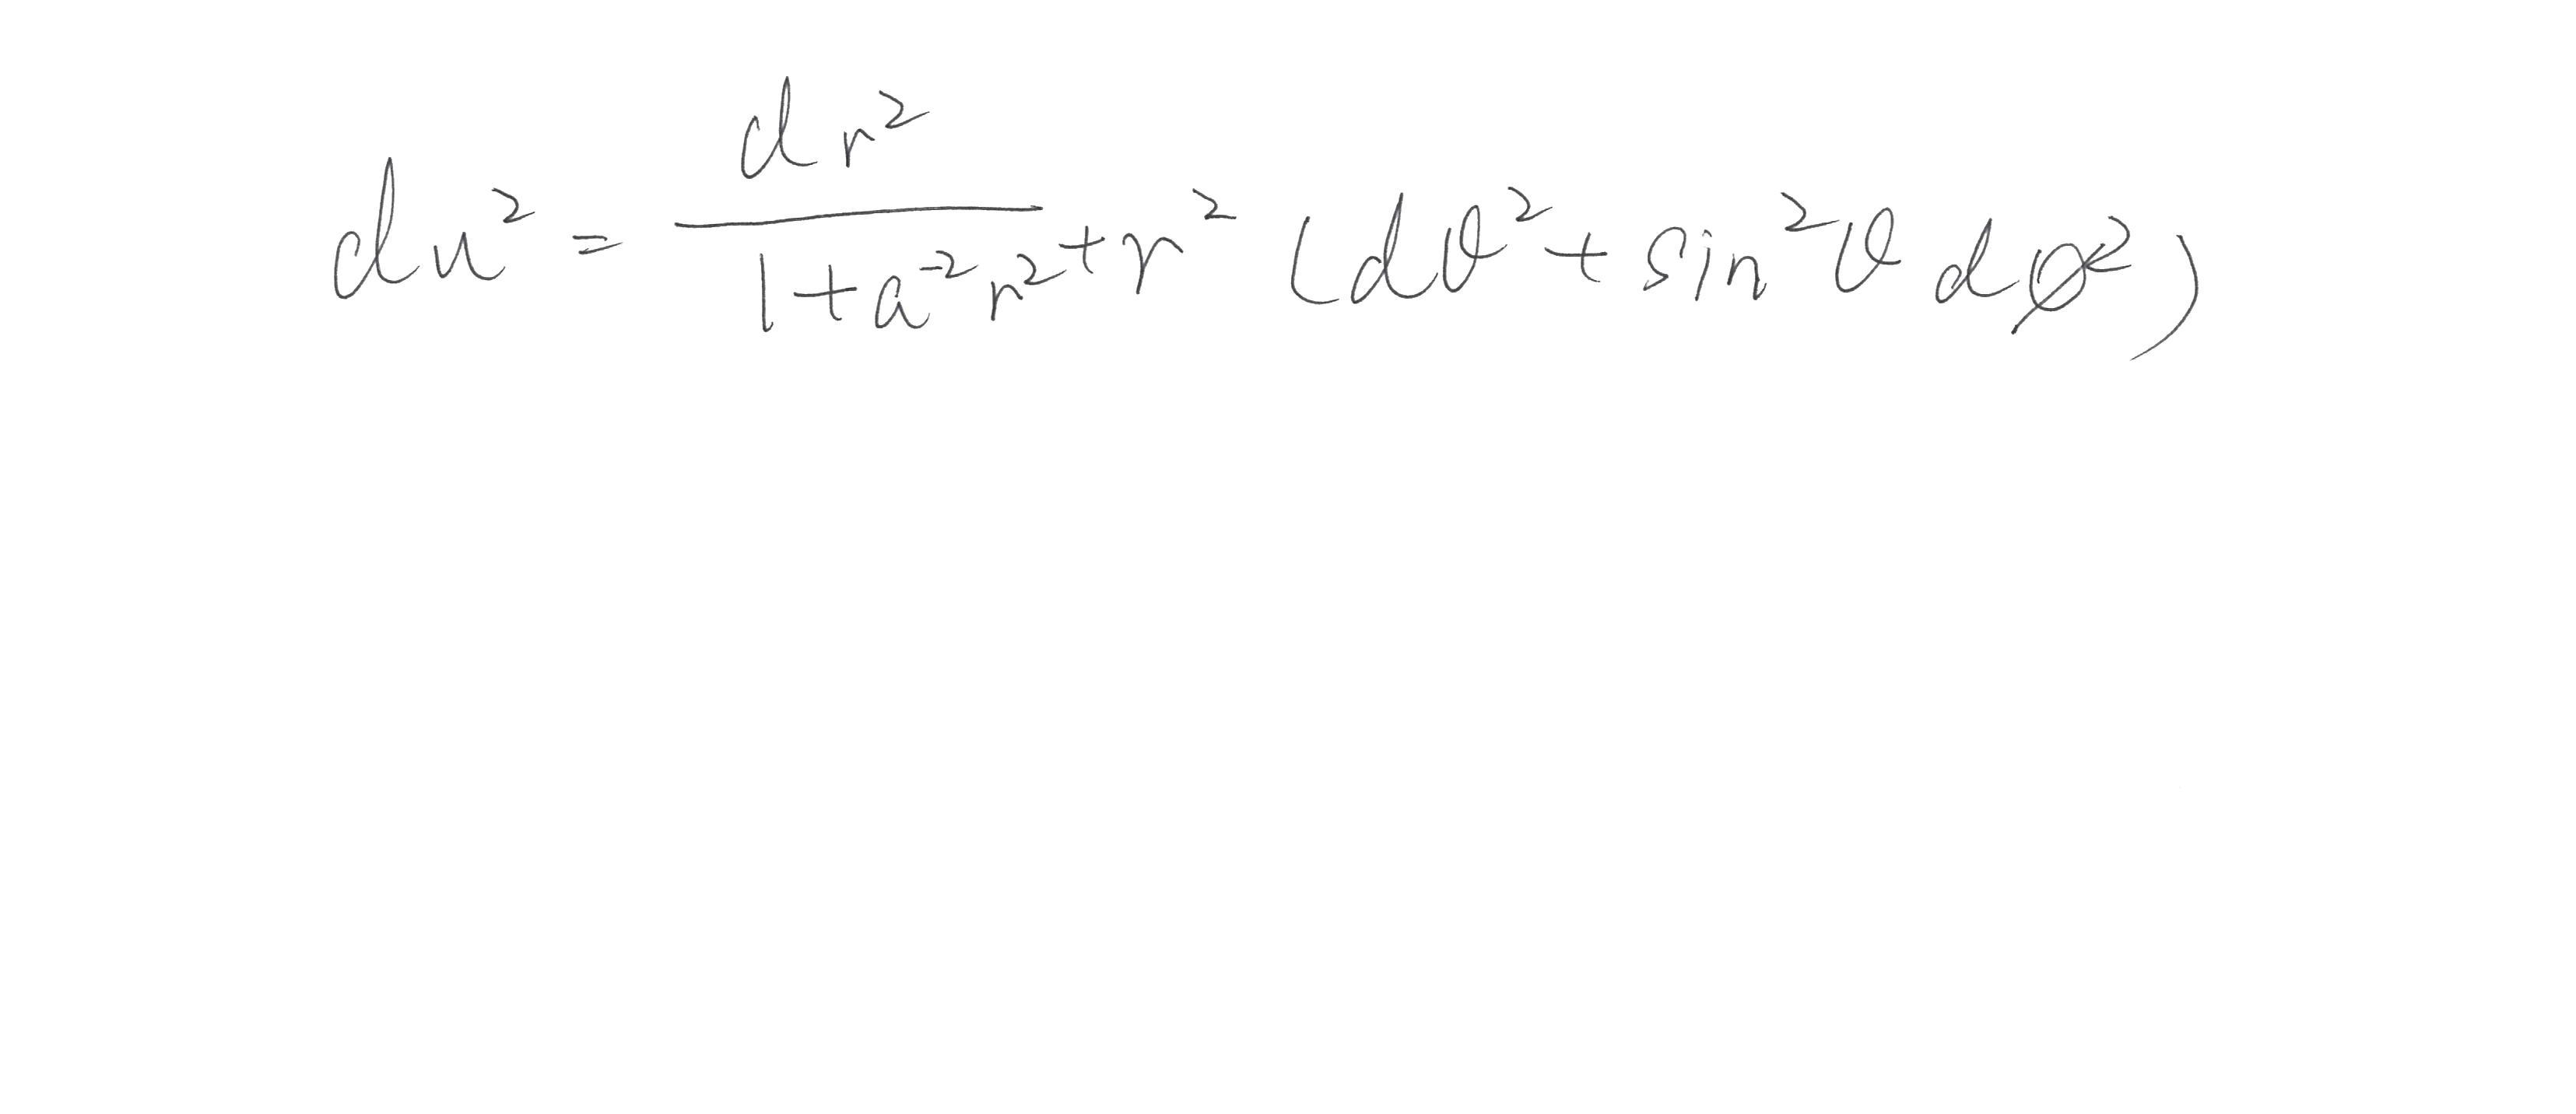 du² = dr² / (1 + a⁻²r²) + r² (dθ² + sin²θ dø²)